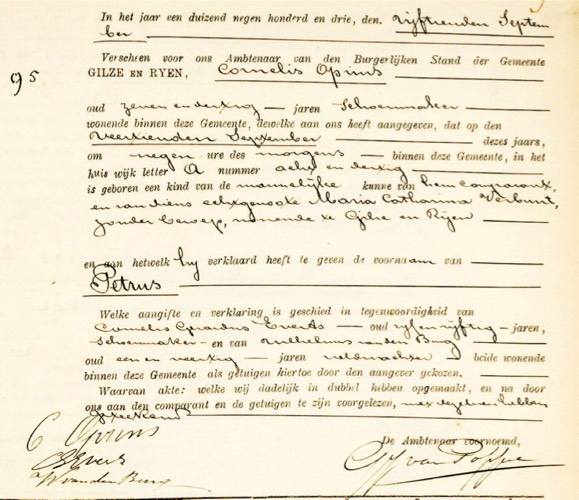 In het jaar een duizend negen honderd en drie, den vijftienden Septem
ber
95
Verscheen voor ons Ambtenaar van den Burgerlijken Stand der Gemeente
GILZE EN RYEN, Cornelis Oprins
oud zeven en dertig jaren Schoenmaker
wonende binnen deze Gemeente, dewelke aan ons heeft aangegeven, dat op den
veertienden September dezes jaars,
om negen ure des morgens binnen deze Gemeente, in het
huis wijk letter A nummer acht en dertig
is geboren een kind van de mannelijke kunne van hem comparant,
en van diens echtgenoote Maria Catharina Verbunt,
zonder beroep, wonende te Gilze en Rijen
en aan hetwelk hij verklaard heeft te geven de voornaam van
Petrus
Welke aangifte en verklaring is geschied in tegenwoordigheid van
Cornelis Gerardus Everts oud vijf en vijftig jaren,
Schoenmaker en van Wilhelmus van den Burg
oud een en veertig jaren veldwachter beide wonende
binnen deze Gemeente als getuigen hiertoe door den aangever gekozen.
Waarvan akte: welke wij dadelijk in dubbel hebben opgemaakt, en na door
ons aan den comparant en de getuigen te zijn voorgelezen, met dezelven hebben
geteekend
C Oprins
De Ambtenaar voornoemd,
Everts
W van den Burg
van Poppel